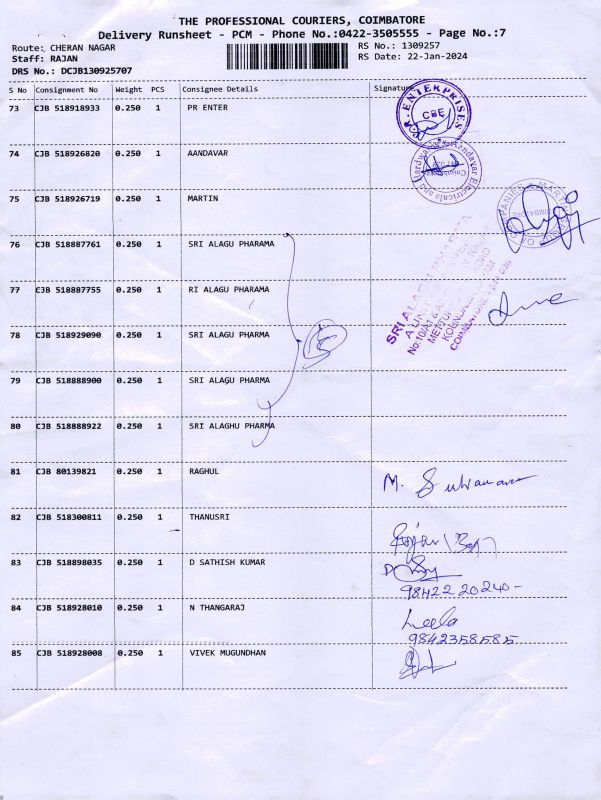 THE PROFESSIONAL COURIERS, COIMBATORE
Delivery Runsheet - PCM - Phone No.:0422-3505555 - Page No.:7
Route: CHERAN NAGAR RS No.: 1309257
Staff: RAJAN RS Date: 22-Jan-2024
DRS No.: DCJB130925707
S No Consignment No Weight PCS Consignee Details Signature
73 CJB 518918933 0.250 1 PR ENTER
74 CJB 518926820 0.250 1 AANDAVAR
75 CJB 518926719 0.250 1 MARTIN
76 CJB 518887761 0.250 1 SRI ALAGU PHARAMA
77 CJB 518887755 0.250 1 RI ALAGU PHARAMA
78 CJB 518929090 0.250 1 SRI ALAGU PHARMA
79 CJB 518888900 0.250 1 SRI ALAGU PHARMA
80 CJB 518888922 0.250 1 SRI ALAGHU PHARMA
81 CJB 80139821 0.250 1 RAGHUL
82 CJB 518300811 0.250 1 THANUSRI
83 CJB 518898035 0.250 1 D SATHISH KUMAR
98422 20240-
84 CJB 518928010 0.250 1 N THANGARAJ Leela
9842358585
85 CJB 518928008 0.250 1 VIVEK MUGUNDHAN
ENTERPRISES
CBE
SRI ALAGU PHARMA